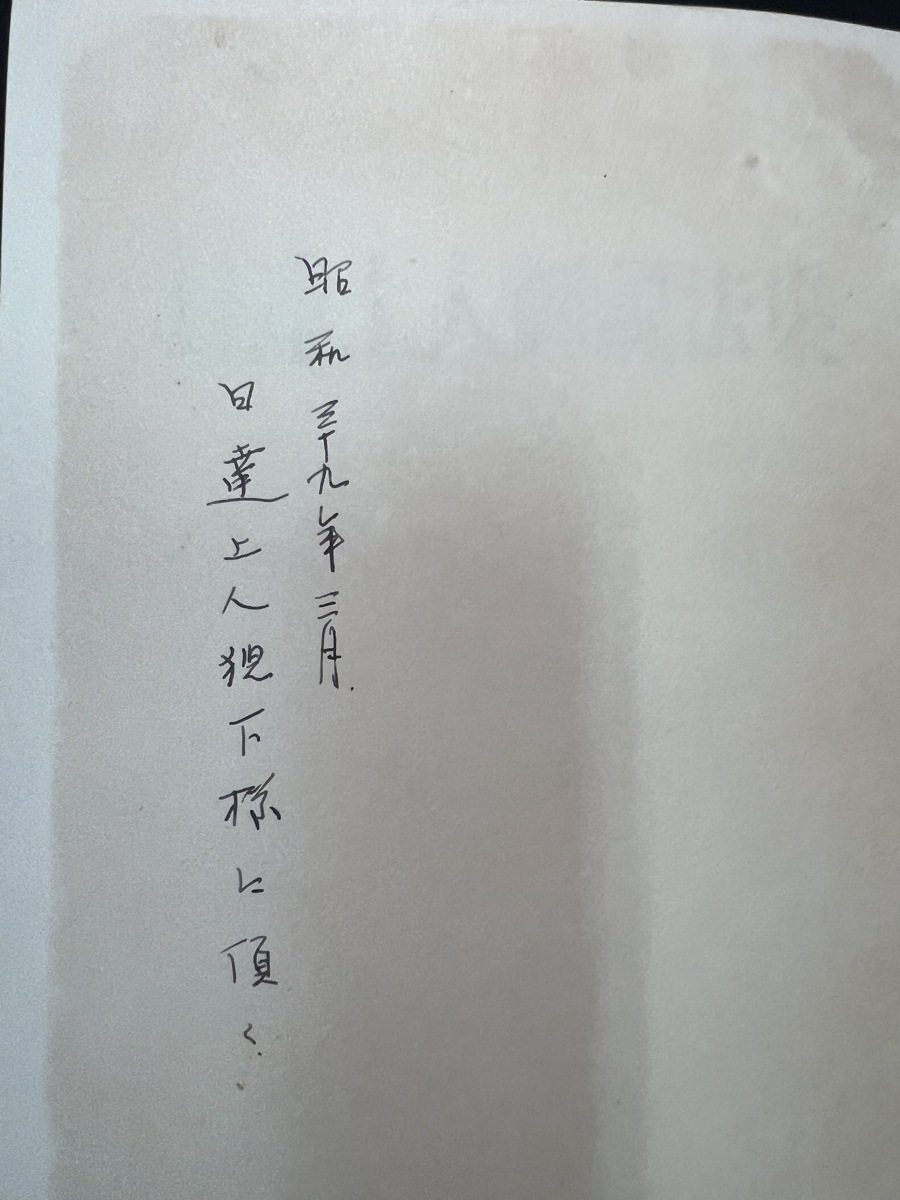 昭和三十九年三月.
日達上人猊下様に頂く.